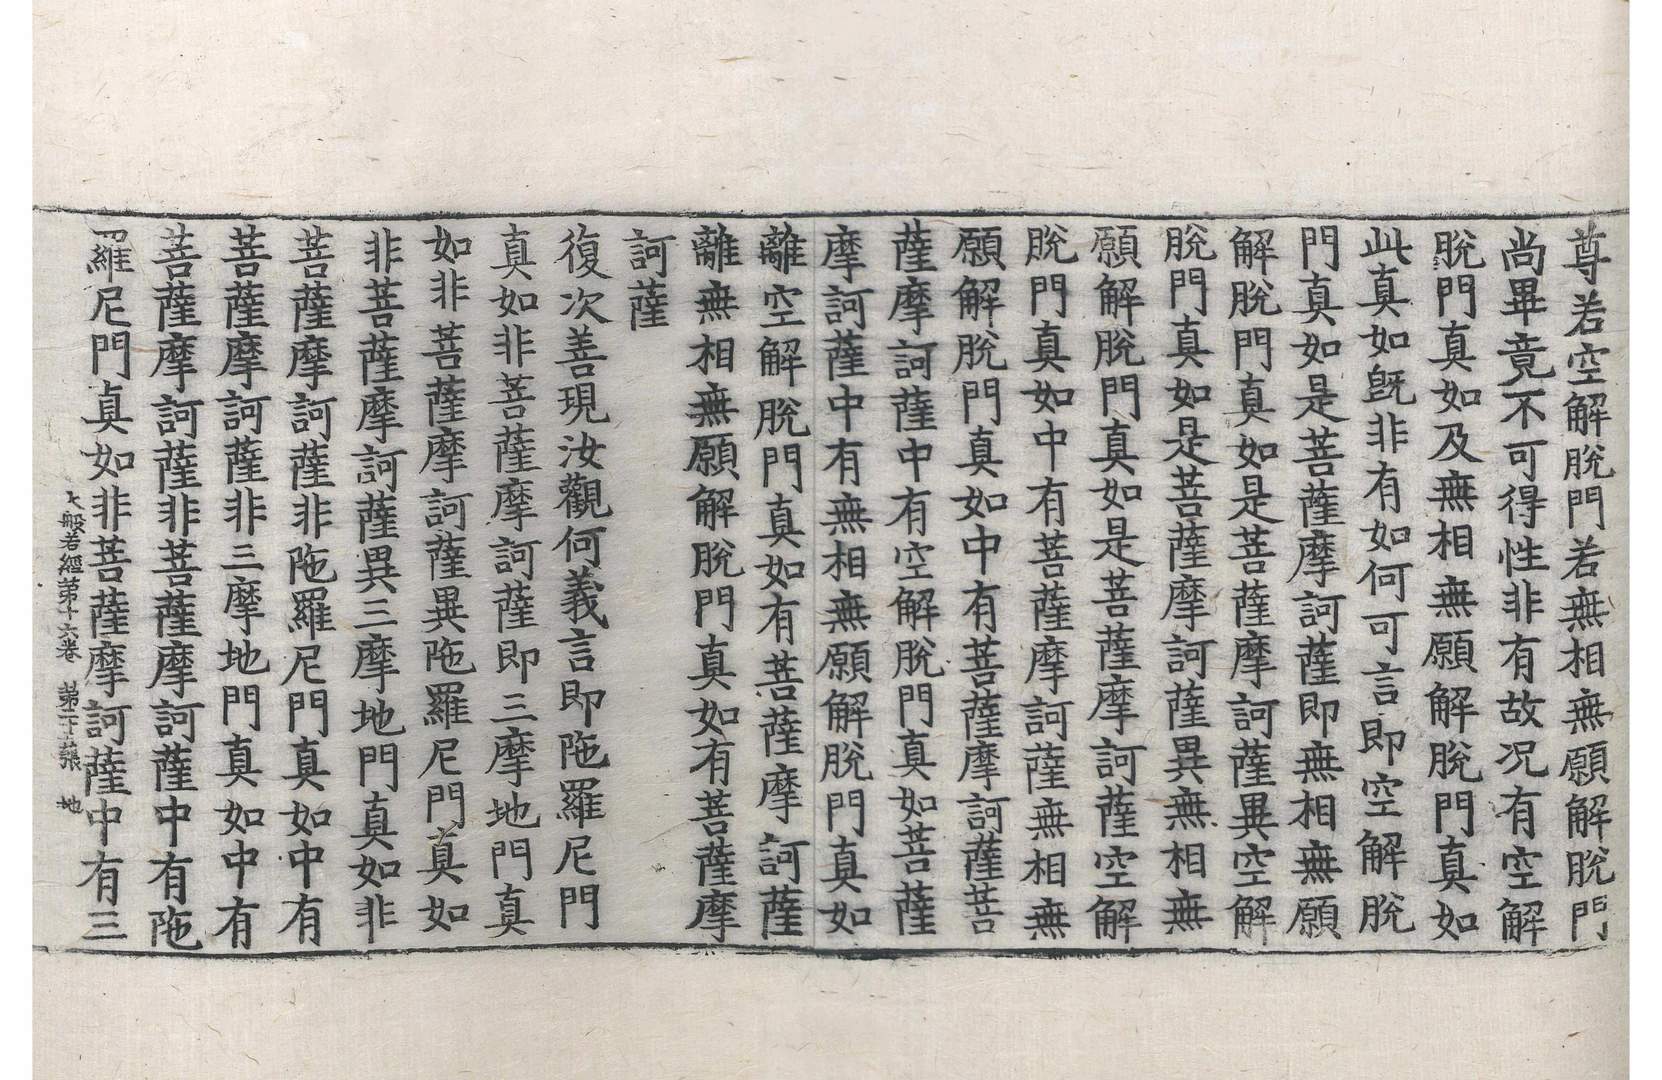 尊若空解脫門若無相無願解脫門
尚畢竟不可得性非有故况有空解
脫門真如及無相無願解脫門真如
此真如旣非有如何可言即空解脫
門真如是菩薩摩訶薩即無相無願
解脫門真如是菩薩摩訶薩異空解
脫門真如是菩薩摩訶薩異無相無
願解脫門真如是菩薩摩訶薩空解
脫門真如中有菩薩摩訶薩無相無
願解脫門真如中有菩薩摩訶薩菩
薩摩訶薩中有空解脫門真如菩薩
摩訶薩中有無相無願解脫門真如
離空解脫門真如有菩薩摩訶薩
離無相無願解脫門真如有菩薩摩
訶薩
復次善現汝觀何義言即陁羅尼門
真如非菩薩摩訶薩即三摩地門真
如非菩薩摩訶薩異陁羅尼門真如
非菩薩摩訶薩異三摩地門真如非
菩薩摩訶薩非陁羅尼門真如中有
菩薩摩訶薩非三摩地門真如中有
菩薩摩訶薩非菩薩摩訶薩中有陁
羅尼門真如非菩薩摩訶薩中有三
大般若經第十六卷 第 張 地